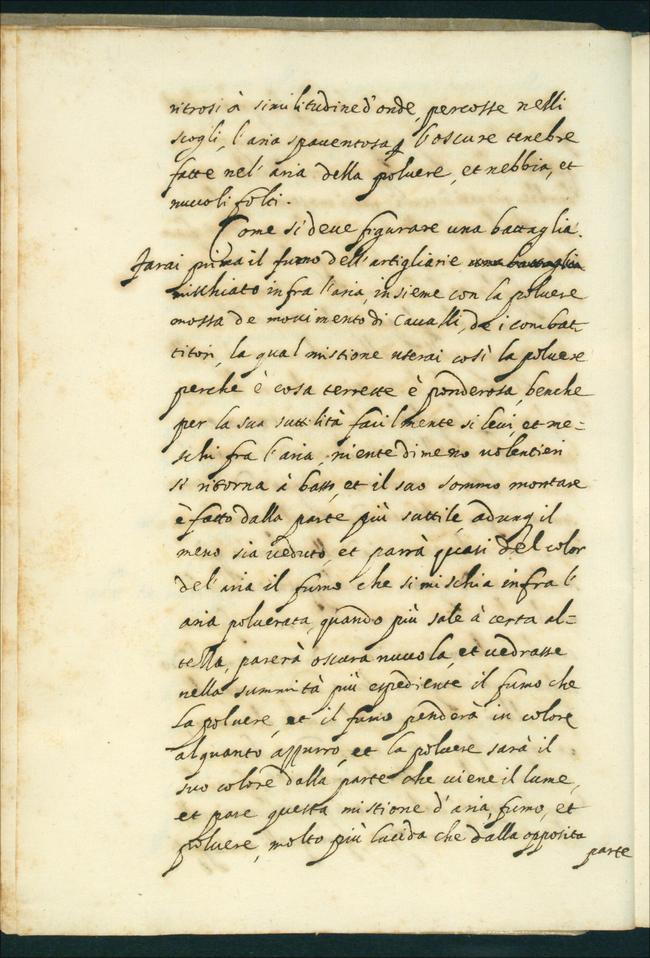 ritrosi à similitudine d'onde, percosse nelli
scogli, l'aria spauentosa p l'oscure tenebre
fatte nel'aria della poluere, et nebbia, et
nuuoli folti.
Come si deue figurare una battaglia.
Farai prima il fumo dell'artigliarie una battaglia
mischiato infra l'aria, insieme con la poluere
mossa de mouimento di Caualli, de i combat-
titori, la qual mistione userai così la poluere
perche è cosa terreste è ponderosa, benche
per la sua suttilità facilmente si leui, et me=
schi fra l'aria, nientedimeno uolentieri
si ritorna à basso, et il suo sommo montare
è fatto dalla parte più suttile, adunq il
meno sia ueduto, et parrà quasi del color
del'aria il fumo che si mischia infra l'
aria poluerata, quando più sale à certa al=
tella, parerà oscura nuuola, et uedrasse
nella summità più espediente il fumo che
la poluere, et il fumo penderà in colore
alquanto azzurro, et la poluere sarà il
suo colore dalla parte che uiene il lume,
et pare questa mistione d'aria, fumo, et
poluere, molto più lucida che dalla opposita
parte